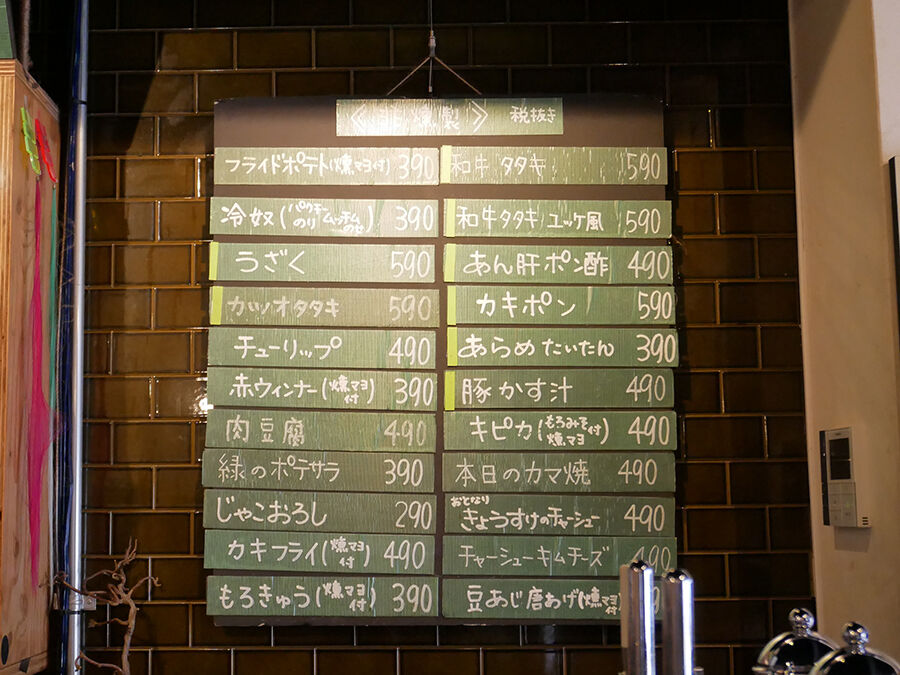 非燻製 税抜き
フライドポテト(燻マヨ付) 390
冷奴(パクチームッチムのりのせ) 390
うざく 590
カツオタタキ 590
チューリップ 490
赤ウィンナー(燻マヨ付) 390
肉豆腐 490
緑のポテサラ 390
じゃこおろし 290
カキフライ(燻マヨ付) 490
もろきゅう(燻マヨ付) 390
和牛タタキ 590
和牛タタキユッケ風 590
あん肝ポン酢 490
カキポン 590
あらめたいたん 390
豚かす汁 490
キピカ(もろみそ燻マヨ付) 490
本日のカマ焼 490
おとなり
きょうすけのチャーシュー 490
チャーシューキムチーズ 490
豆あじ唐あげ(燻マヨ付)